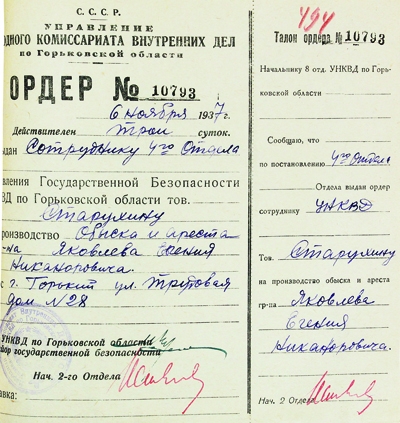 С. С. С. Р.
УПРАВЛЕНИЕ
ОДНОГО КОМИССАРИАТА ВНУТРЕННИХ ДЕЛ
по Горьковской области
ОРДЕР № 10793
6 ноября 1937г.
Действителен трои суток.
ыдан Сотруднику 4го Отдела
вления Государственной Безопасности
ВД по Горьковской области тов.
Старухину
роизводство Обыска и ареста
-на Яковлева Евгения
Никаноровича.
г. Горький ул. Трудовая
дом № 28
УНКВД по Горьковской области
йор государственной безопасности
Нач. 2-го Отдела
авка:
494
Талон ордера № 10793
Начальнику 8 отд. УНКВД по Горь-
ковской области
Сообщаю, что
по постановлению 4го Отдел
Отдела выдан ордер
сотруднику УНКВД
Тов. Старухину
на производство обыска и ареста
гр-на Яковлева
Евгения
Никаноровича.
Нач. 2 Отдела